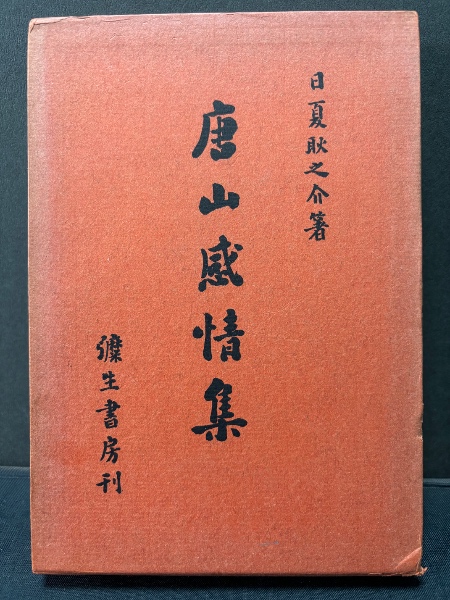 日夏耿之介著
唐山感情集
彌生書房刊